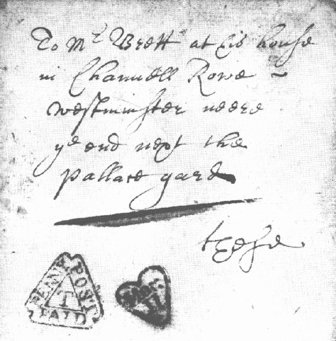 To Mr Brett at his house
in Channell Rowe
westminster neere
ye end next the
pallace yard
these
PENNY POST PAID
T